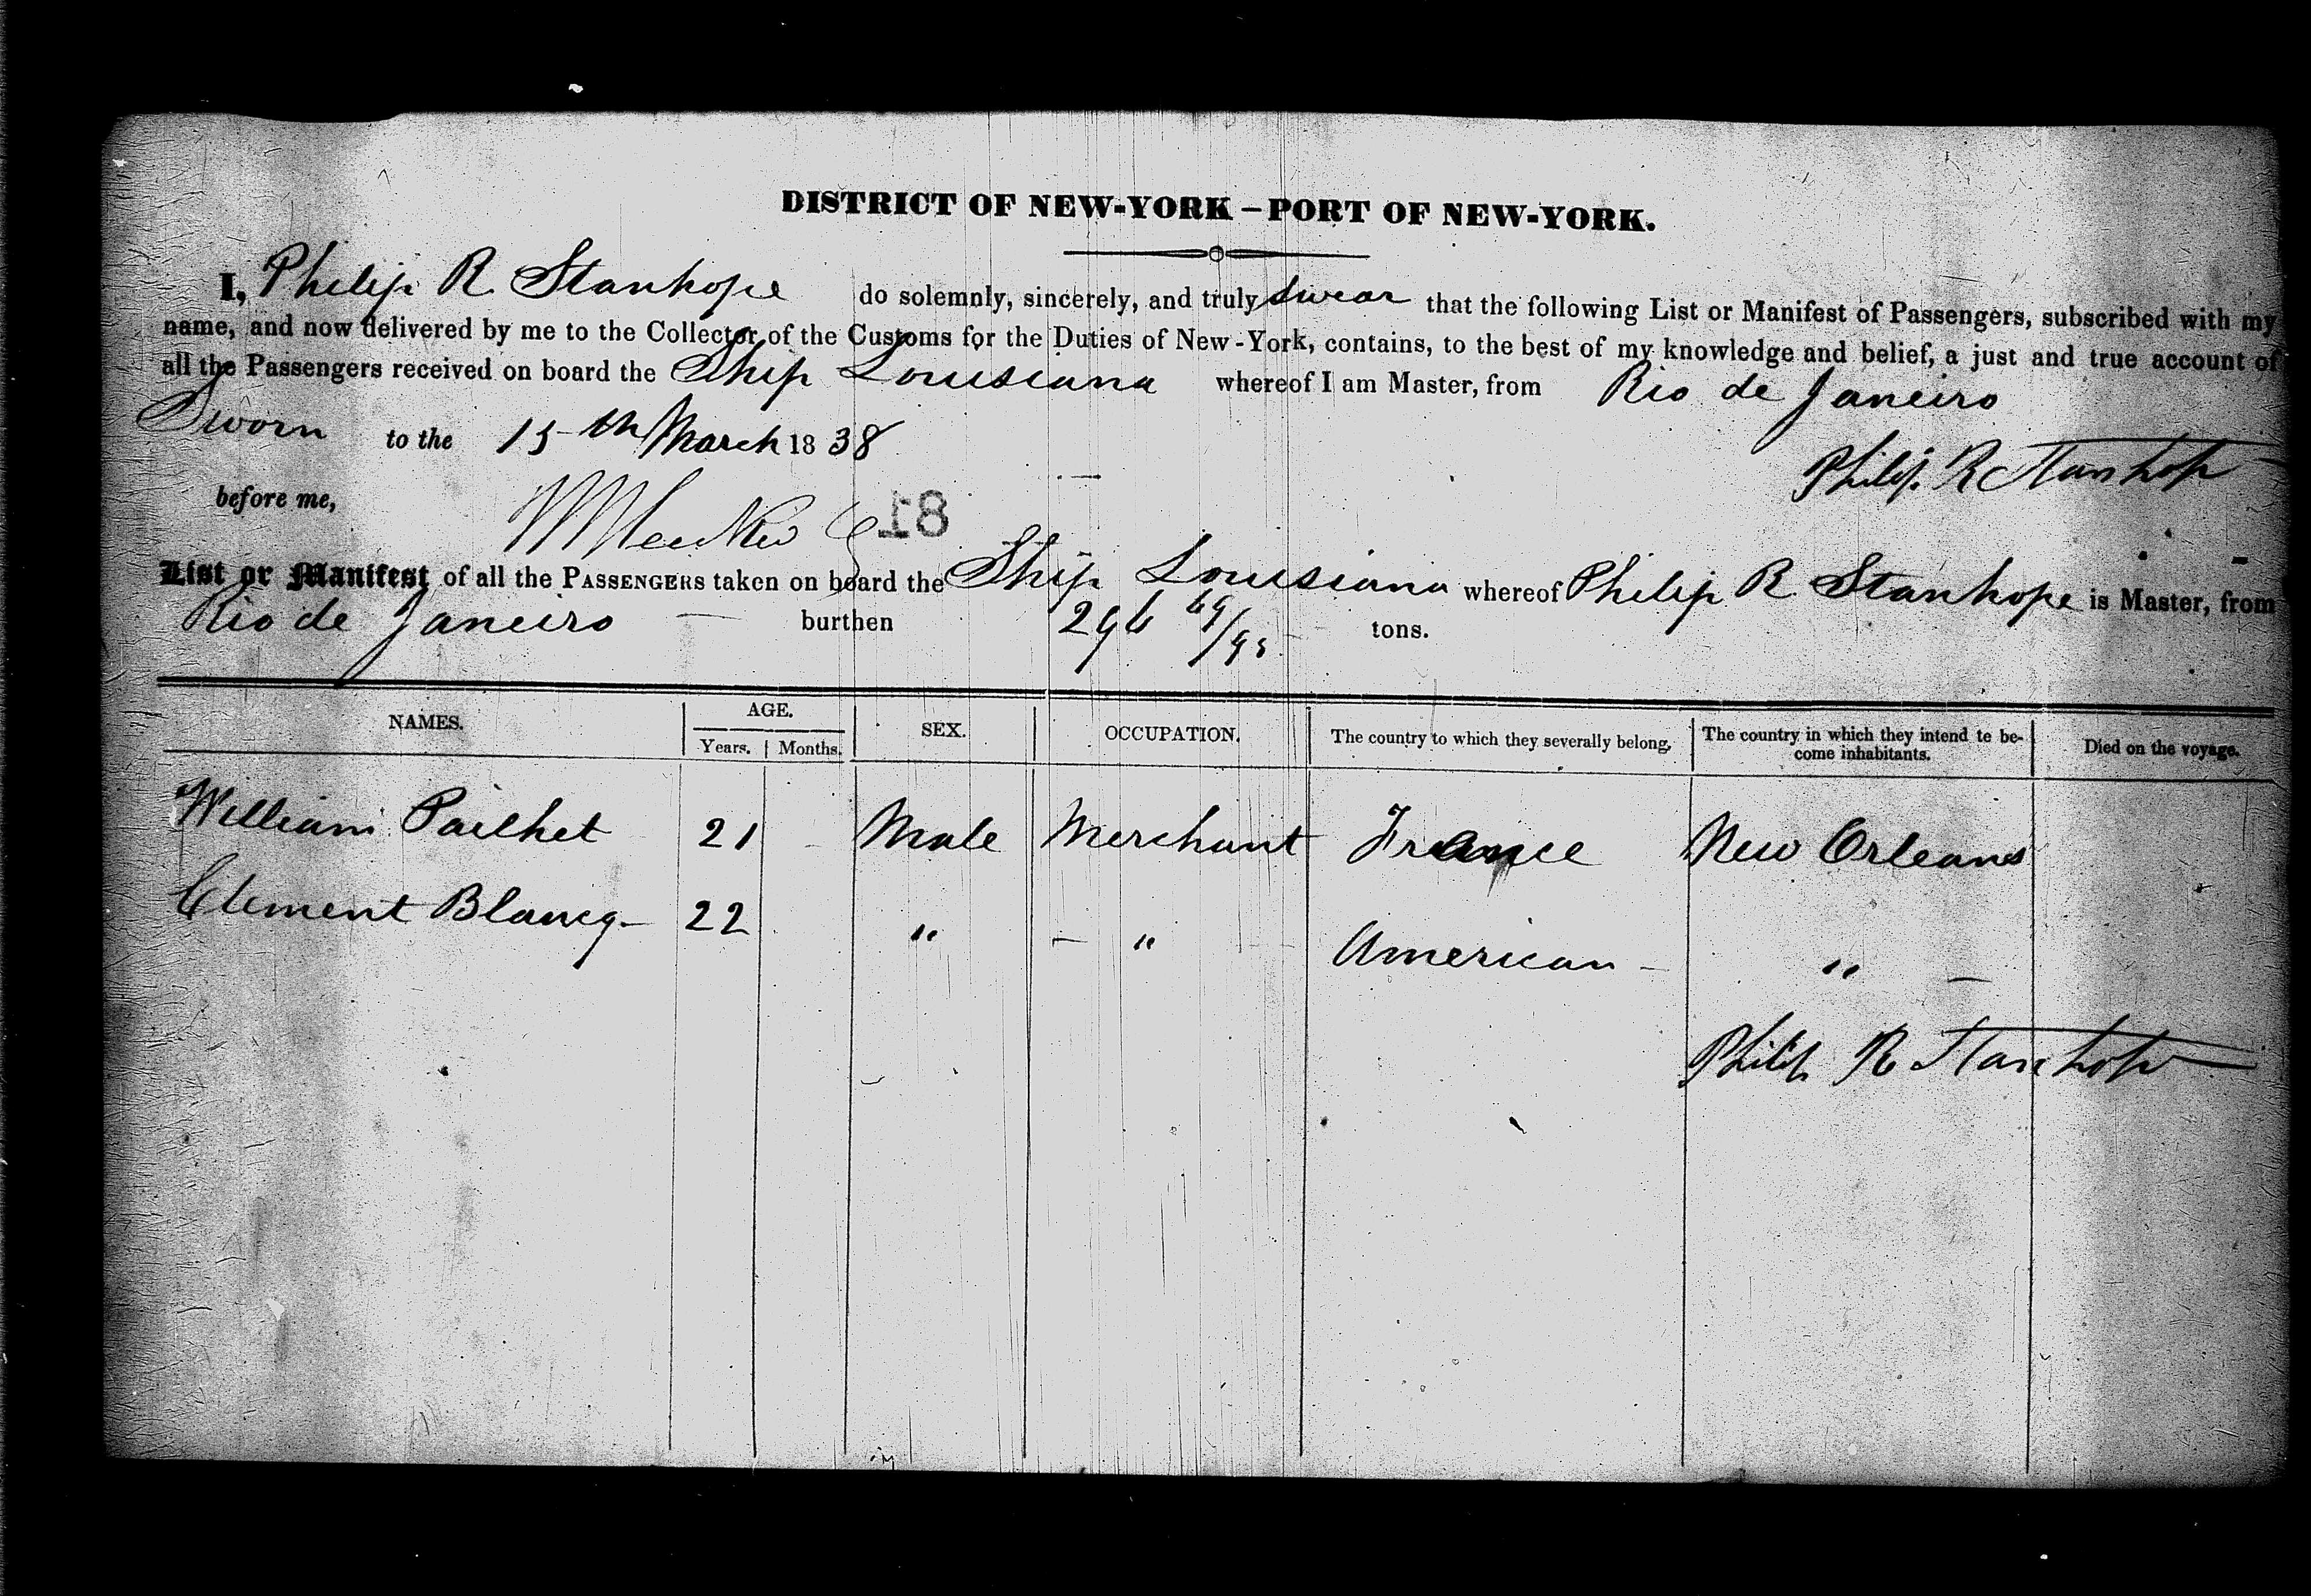 DISTRICT OF NEW-YORK – PORT OF NEW-YORK.
I, Philip R. Stanhope do solemnly, sincerely, and truly swear that the following List or Manifest of Passengers, subscribed with my
name, and now delivered by me to the Collector of the Customs for the Duties of New-York, contains, to the best of my knowledge and belief, a just and true account of
all the Passengers received on board the Ship Louisiana whereof I am Master, from Rio de Janeiro
Sworn to the 15th March 1838
Philip R Stanhope
before me,
18
List or Manifest of all the PASSENGERS taken on board the Ship Louisiana whereof Philip R. Stanhope is Master, from
Rio de Janeiro — burthen 296 69/95 tons.
NAMES. AGE. SEX. OCCUPATION. The country to which they severally belong. The country in which they intend te be- Died on the voyage.
Years. Months. come inhabitants.
William Pailhet 21 Male Merchant France New Orleans
Clement Blancq 22 " — " American — " —
Philip R Stanhope